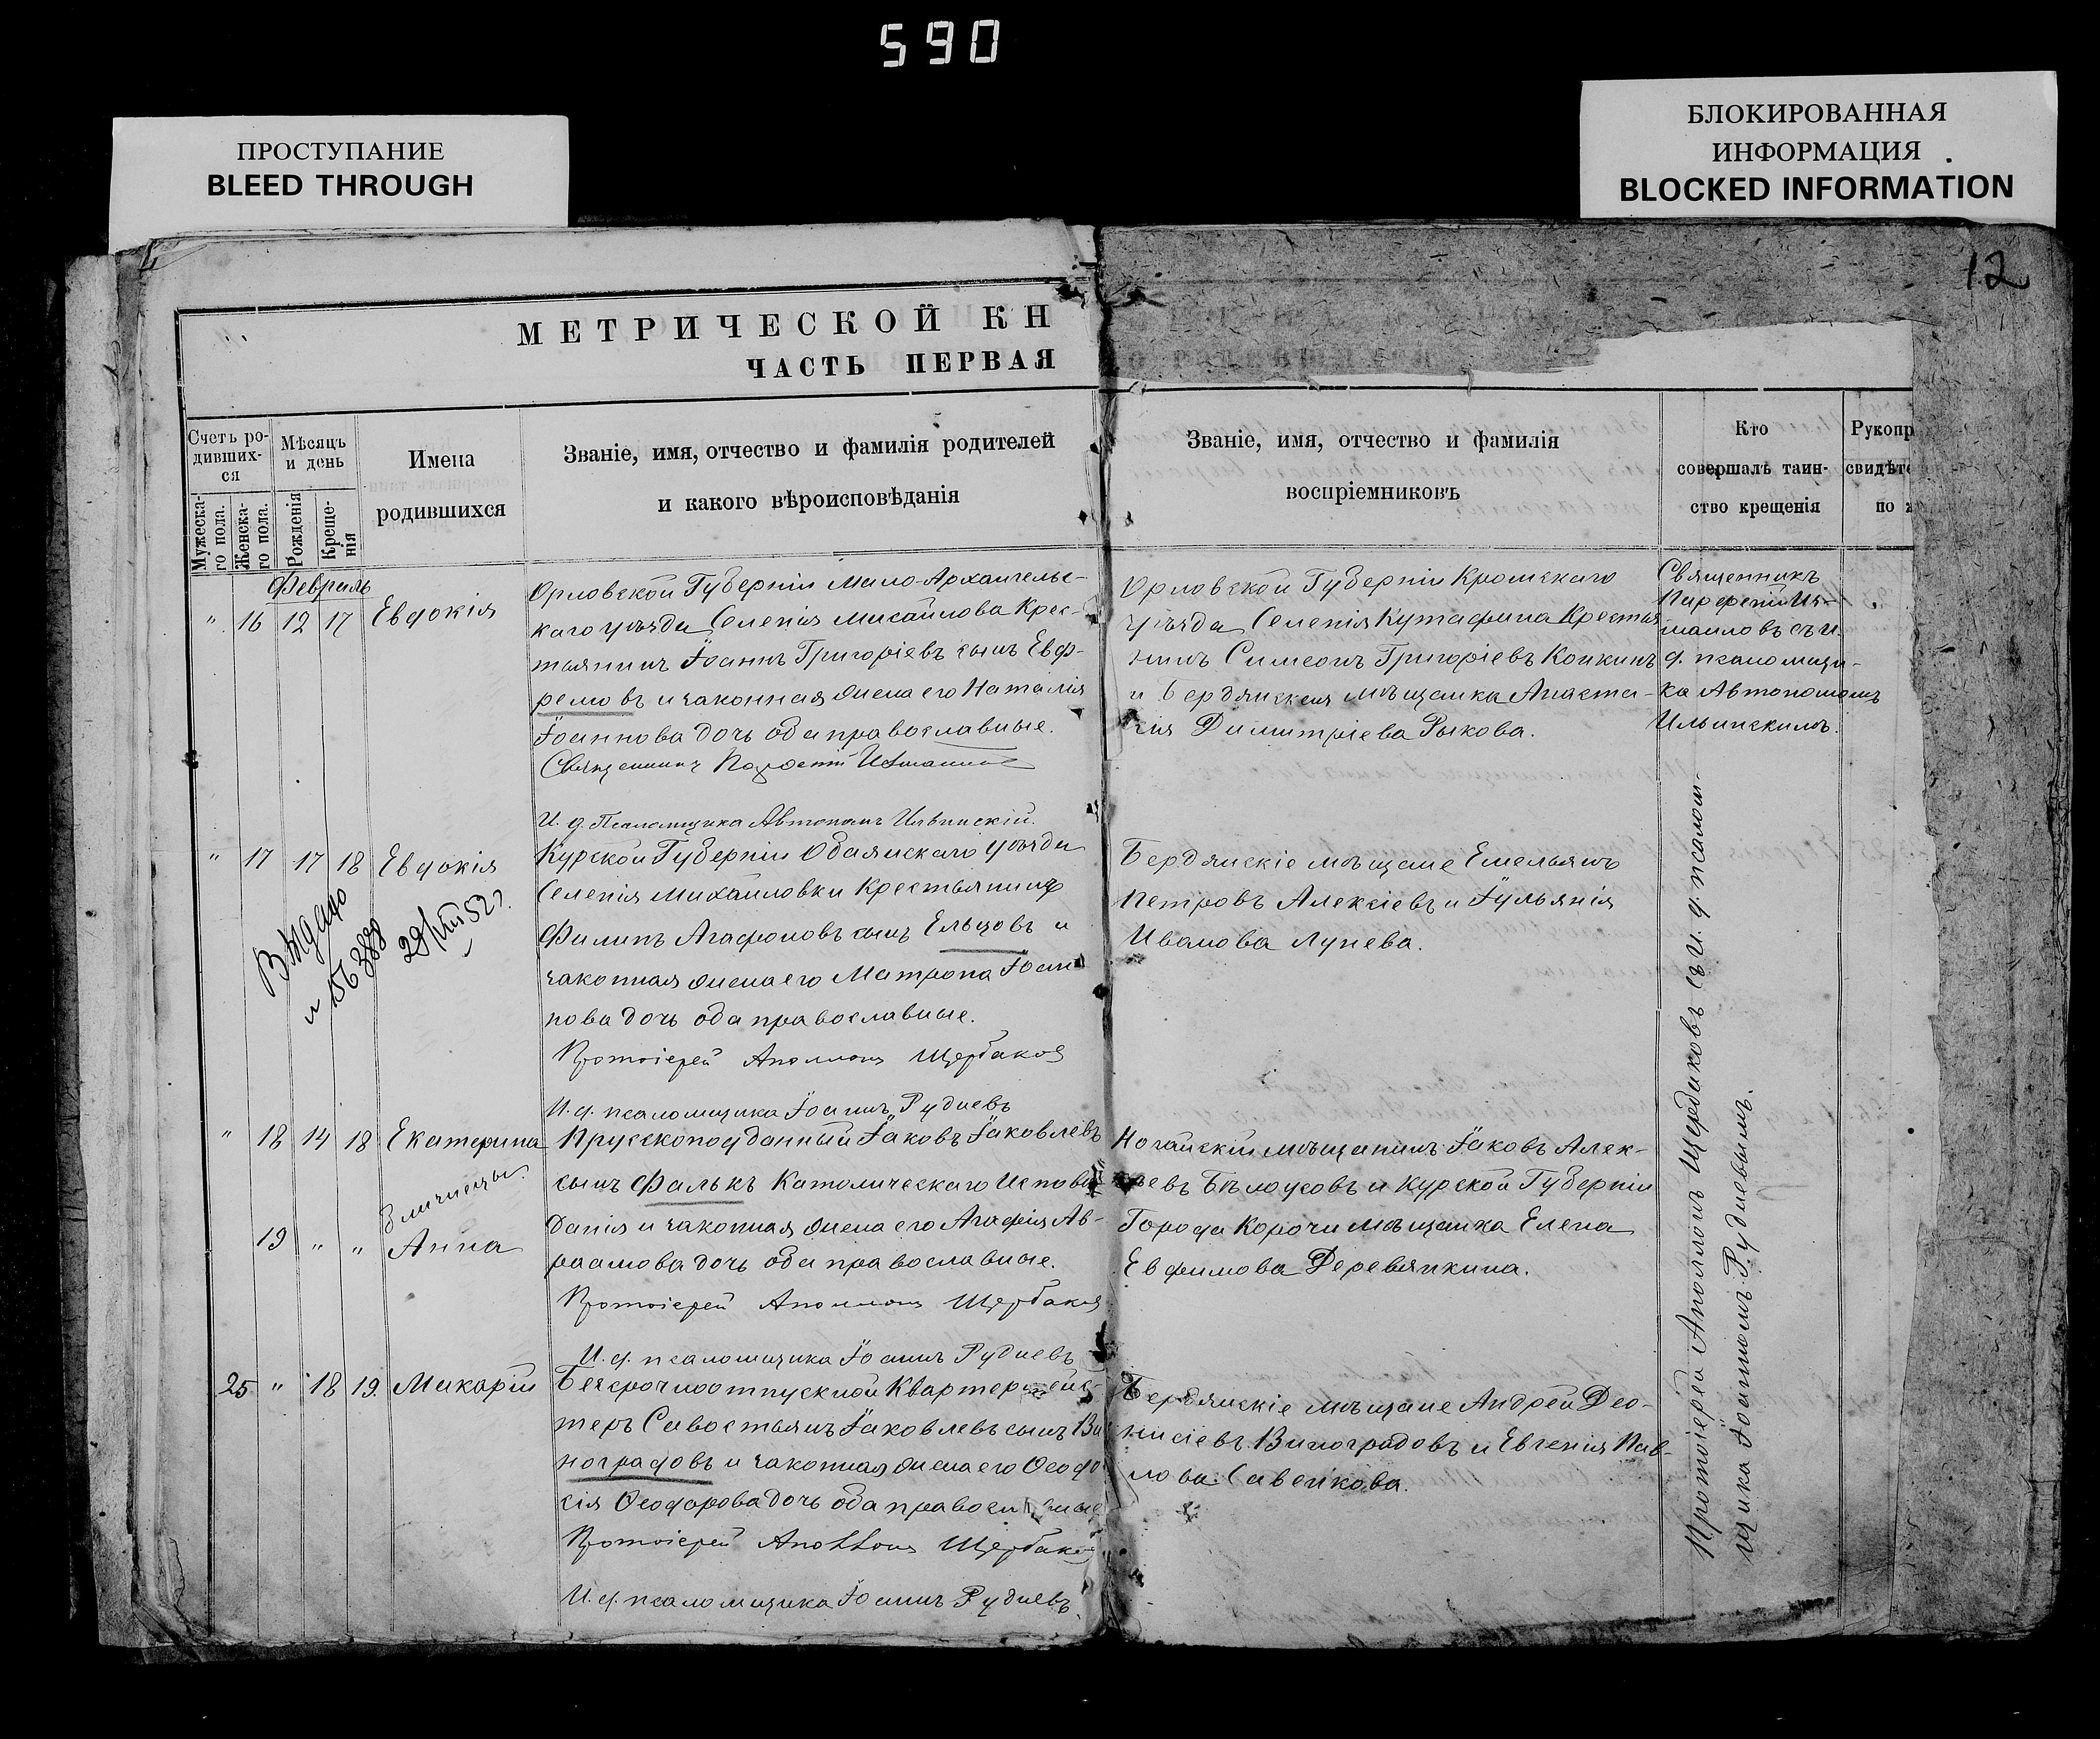 590
ПРОСТУПАНИЕ
BLEED THROUGH
БЛОКИРОВАННАЯ
ИНФОРМАЦИЯ
BLOCKED INFORMATION
12
МЕТРИЧЕСКОЙ КН
ЧАСТЬ ПЕРВАЯ
Счетъ ро-
дивших-
ся
Мужеска-
го пола.
Женска-
го пола.
Мѣсяцъ
и день
Рожденія
Креще-
нія
Имена
родившихся
Званіе, имя, отчество и фамилія родителей
и какого вѣроисповѣданія
Званіе, имя, отчество и фамилія
воспріемниковъ
Кто
совершалъ таин-
ство крещенія
Рукопр
свидѣте
по ж
Февраль
" 16 12 17 Евдокія
Орловской Губерніи Мало-Архангельс-
каго уѣзда Селенія Михайлова Крес-
тьянинъ Іоаннъ Григоріевъ сынъ Евф-
ремовъ и законная жена его Наталія
Іоаннова дочь оба православные.
Священникъ
И. д. Псаломщика Автономъ Ильинскій.
Орловской Губерніи Кромскаго
уѣзда Селенія Кутафина Крестья
нинъ Симеонъ Григоріевъ Конкинъ
и Бердянская мѣщанка Анаста-
сія Димитріева Рыкова.
Священникъ
Парфеній Из-
маиловъ съ и.
д. псаломщи-
ка Автономомъ
Ильинскимъ.
" 17 17 18 Евдокія
Выдано
29/XII 52 г.
Курской Губерніи Обаянскаго уѣзда
Селенія Михайловки Крестьянинъ
Филипъ Агафоновъ сынъ Ельцовъ и
законная жена его Матрона Іоан
нова дочь оба православные.
Протоіерей Аполлонъ Щербаковъ
И. д. псаломщика Іоаннъ Рудневъ
Бердянскіе мѣщане Емельянъ
Петровъ Алексіевъ и Іульянія
Иванова Лунева.
" 18 14 18 Екатерина
Близнецы.
19 " " Анна
Прусскоподданный Іаковъ Іаковлевъ
сынъ Фалькъ Католическаго Исповѣ
данія и законная жена его Агафія Ав-
раамова дочь оба православные.
Протоіерей Аполлонъ Щербаковъ
И. д. псаломщика Іоаннъ Рудневъ
Ногайскій мѣщанинъ Іаковъ Алек-
сѣевъ Бѣлоусовъ и Курской Губерніи
Города Корочи Мѣщанка Елена
Евфимова Деревянкина.
25 " 18 19. Макарій
Безсрочноотпускной Квартермейс-
теръ Савостьянъ Іаковлевъ сынъ Ви
ноградовъ и законная жена его Ѳеодо
сія Ѳеодорова дочь оба православные
Протоіерей Аполлонъ Щербаковъ
И. д. псаломщика Іоаннъ Рудневъ.
Бердянскіе мѣщане Андрей Део-
нисіевъ Виноградовъ и Евгенія Пав-
лова Савенкова.
Протоіерей Аполлонъ Щербаковъ съ И. д. псалом-
щика Іоанномъ Рудневымъ.